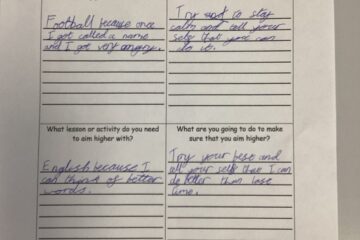 Football because once
I got called a name
and I got very angry.
Try and to stay
calm and tell your
self that you can
do it.
What lesson or activity do you need
to aim higher with?
English because I
can think of better
words.
What are you going to do to make
sure that you aim higher?
Try your best and
tell your self that I can
do better than last
time.